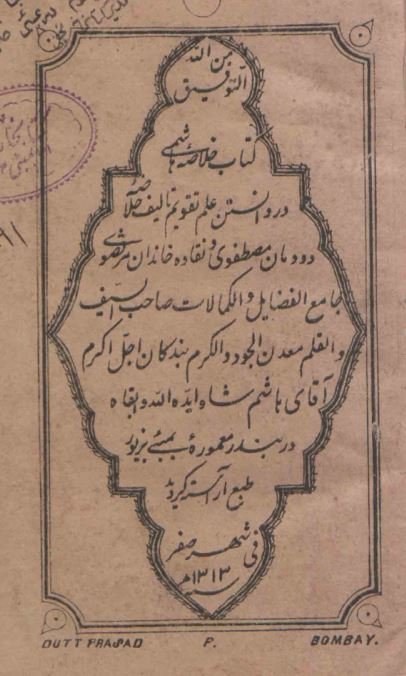 من الله
التوفیق
کتاب خلاصه هاشمی
در دانستن علم تقویم تالیف خلاصه
دودمان مصطفوی و نقاده خاندان مرتضوی
جامع الفضایل والکمالات صاحب السیف
والقلم معدن الجود والکرم بندکان اجل اکرم
آقای هاشم شاه ایده الله وابقاه
در بندر معموره بمبئی بزیور
طبع آراسته کردید
فی شهر صفر
سنه ۱۳۱۳ هـ
DUTT PRASAD P. BOMBAY.